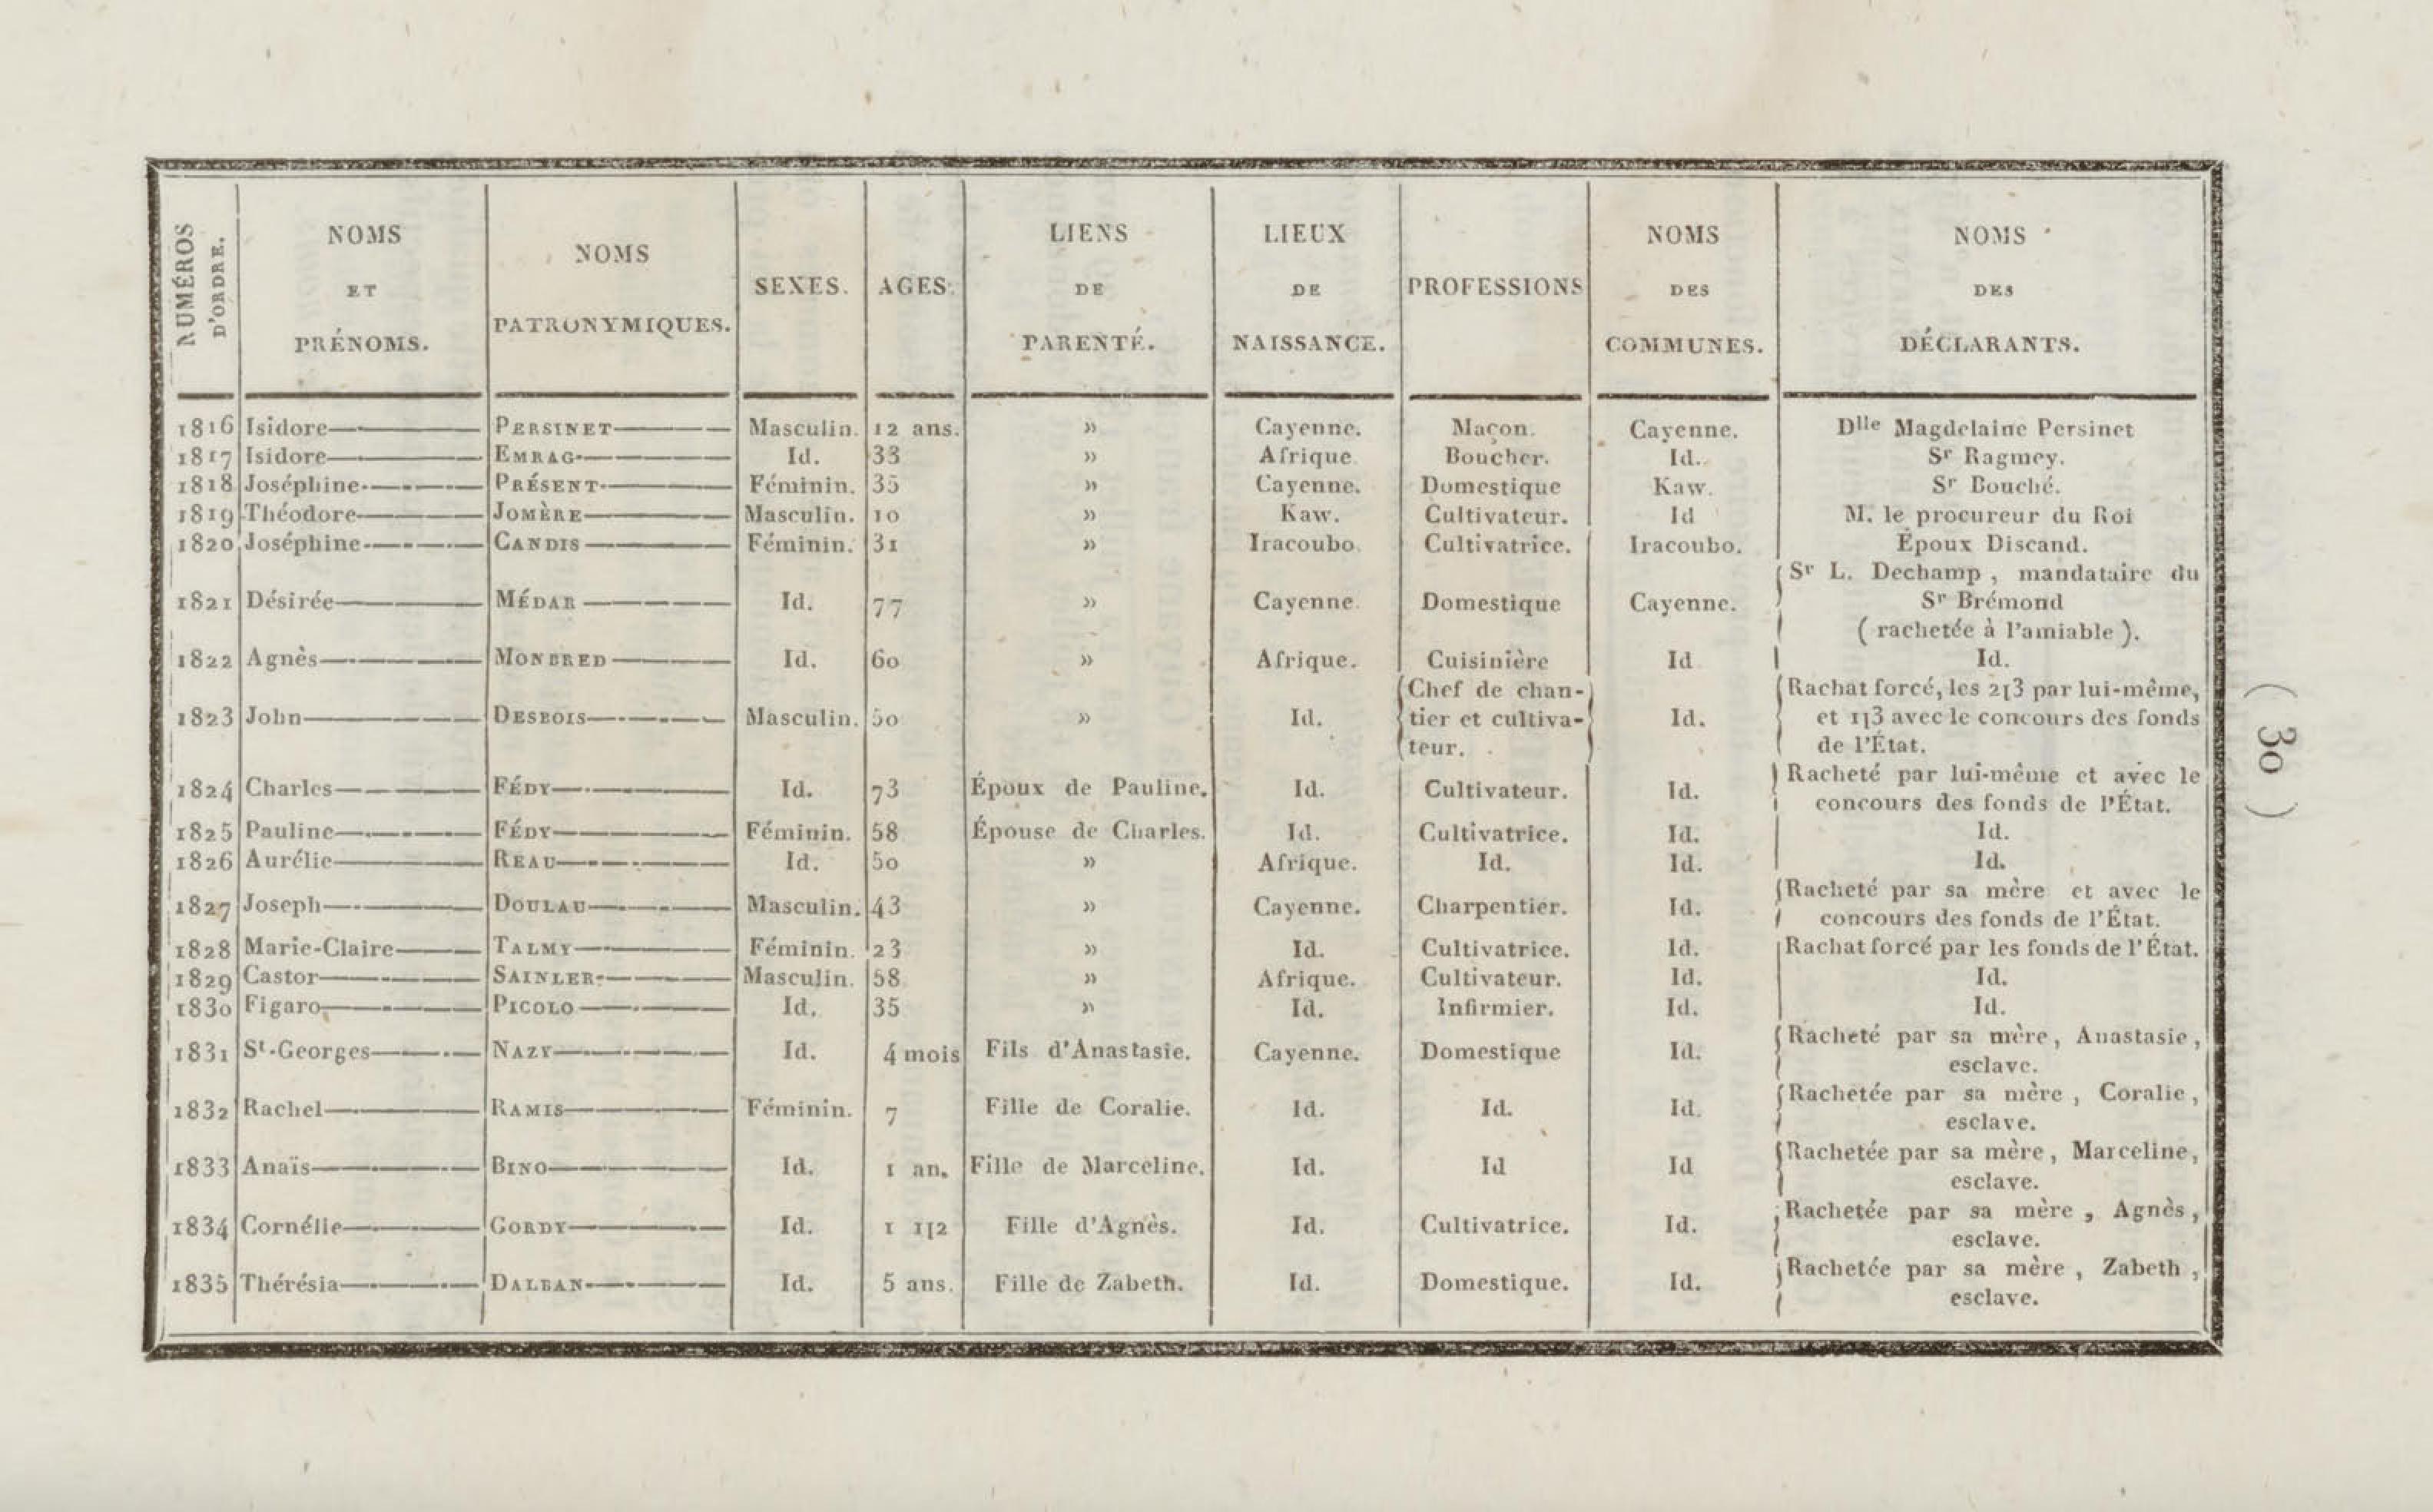 NUMÉROS D'ORDRE. | NOMS ET PRÉNOMS. | NOMS PATRONYMIQUES. | SEXES. | AGES. | LIENS DE PARENTÉ. | LIEUX DE NAISSANCE. | PROFESSIONS | NOMS DES COMMUNES. | NOMS DES DÉCLARANTS.
1816 Isidore PERSINET Masculin. 12 ans. » Cayenne. Maçon. Cayenne. Dlle Magdelaine Persinet
1817 Isidore EMRAG Id. 33 » Afrique. Boucher. Id. Sr Ragmey.
1818 Joséphine PRÉSENT Féminin. 35 » Cayenne. Domestique Kaw. Sr Bouché.
1819 Théodore JOMÈRE Masculin. 10 » Kaw. Cultivateur. Id M. le procureur du Roi
1820 Joséphine CANDIS Féminin. 31 » Iracoubo. Cultivatrice. Iracoubo. Époux Discand.
Sr L. Dechamp, mandataire du
1821 Désirée MÉDAR Id. 77 » Cayenne. Domestique Cayenne. Sr Brémond
(rachetée à l'amiable).
1822 Agnès MONBRED Id. 60 » Afrique. Cuisinière Id Id.
Chef de chan- Rachat forcé, les 2/3 par lui-même,
1823 John DESBOIS Masculin. 50 » Id. tier et cultiva- Id. et 1/3 avec le concours des fonds
teur. de l'État.
Racheté par lui-même et avec le
1824 Charles FÉDY Id. 73 Époux de Pauline. Id. Cultivateur. Id. concours des fonds de l'État.
1825 Pauline FÉDY Féminin. 58 Épouse de Charles. Id. Cultivatrice. Id. Id.
1826 Aurélie REAU Id. 50 » Afrique. Id. Id. Id.
Racheté par sa mère et avec le
1827 Joseph DOULAU Masculin. 43 » Cayenne. Charpentier. Id. concours des fonds de l'État.
1828 Marie-Claire TALMY Féminin. 23 » Id. Cultivatrice. Id. Rachat forcé par les fonds de l'État.
1829 Castor SAINLER Masculin. 58 » Afrique. Cultivateur. Id. Id.
1830 Figaro PICOLO Id. 35 » Id. Infirmier. Id. Id.
Racheté par sa mère, Anastasie,
1831 St-Georges NAZY Id. 4 mois Fils d'Anastasie. Cayenne. Domestique Id. esclave.
Rachetée par sa mère, Coralie,
1832 Rachel RAMIS Féminin. 7 Fille de Coralie. Id. Id. Id. esclave.
Rachetée par sa mère, Marceline,
1833 Anaïs BINO Id. 1 an. Fille de Marceline. Id. Id Id esclave.
Rachetée par sa mère, Agnès,
1834 Cornélie GORDY Id. 1 1/2 Fille d'Agnès. Id. Cultivatrice. Id. esclave.
Rachetée par sa mère, Zabeth,
1835 Thérésia DALBAN Id. 5 ans. Fille de Zabeth. Id. Domestique. Id. esclave.
( 30 )